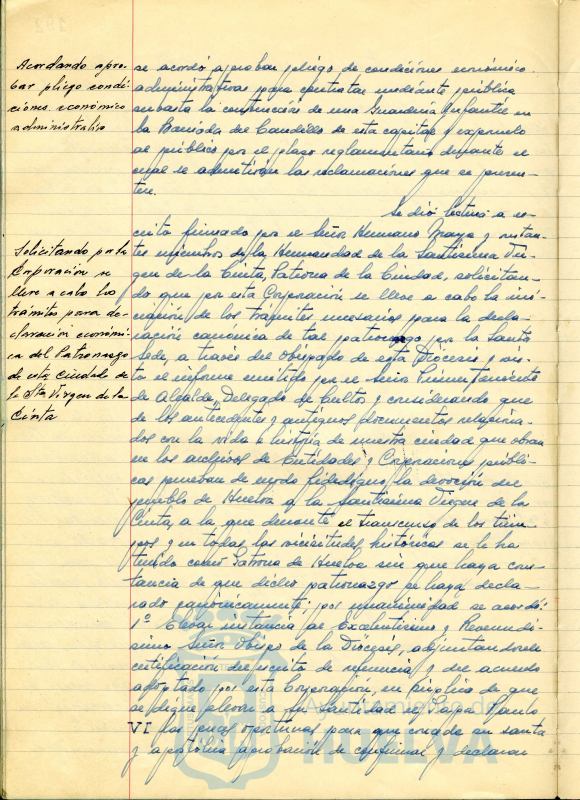 Acordando apro-
bar pliego condi-
ciones económico
administrativo
se acordó aprobar pliego de condiciones económico-
administrativas para contratar mediante pública
subasta la construcción de una Guardería Infantil en
la Barriada del Candil de esta capital y exponerlo
al público por el plazo reglamentario durante el
cual se admitirán las reclamaciones que se presen-
ten.
Solicitando por la
Corporación se
lleve a cabo los
trámites para de-
claración económi-
ca del Patronazgo
de esta Ciudad de
la Sta. Virgen de la
Cinta
Se dió lectura a es-
crito firmado por el Señor Hermano Mayor y restan-
tes miembros de la Hermandad de la Santísima Vir-
gen de la Cinta, Patrona de la Ciudad, solicitan-
do que por esta Corporación se lleve a cabo la ini-
ciación de los trámites necesarios para la decla-
ración canónica de tal patronazgo por la Santa
Sede, a través del Obispado de esta Diócesis y vis-
to el informe emitido por el Señor Primer Teniente
de Alcalde, Delegado de Cultos y considerando que
de los antecedentes y antiguos documentos relaciona-
dos con la vida e historia de nuestra ciudad que obran
en los archivos de Entidades y Corporaciones públi-
cas prueban de modo fidedigno la devoción del
pueblo de Huelva a la Santísima Virgen de la
Cinta, a la que durante el transcurso de los tiem-
pos y en todas las vicisitudes históricas se le ha
tenido como Patrona de Huelva sin que haya cons-
tancia de que dicho patronazgo se haya decla-
rado canónicamente; por unanimidad se acordó:
1º Elevar instancia al Excelentísimo y Reverendí-
simo Señor Obispo de la Diócesis, adjuntándosele
certificación del escrito de referencia y del acuerdo
adoptado por esta Corporación, en súplica de que
se digne elevar a Su Santidad el Papa Paulo
VI las preces oportunas para que conceda su santa
y apostólica aprobación de confirmar y declarar
Ayuntamiento de
HUELVA